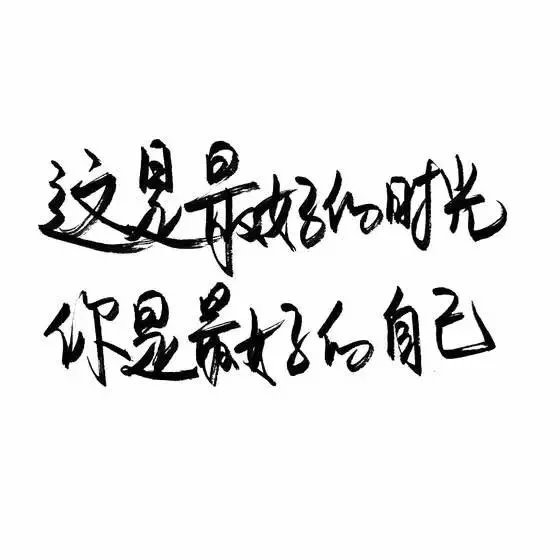 这是最好的时光
你是最好的自己